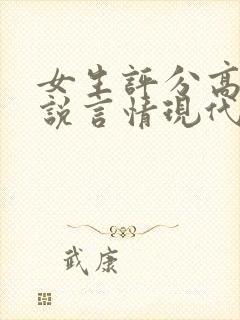 女生評分高
說言情現代
武康